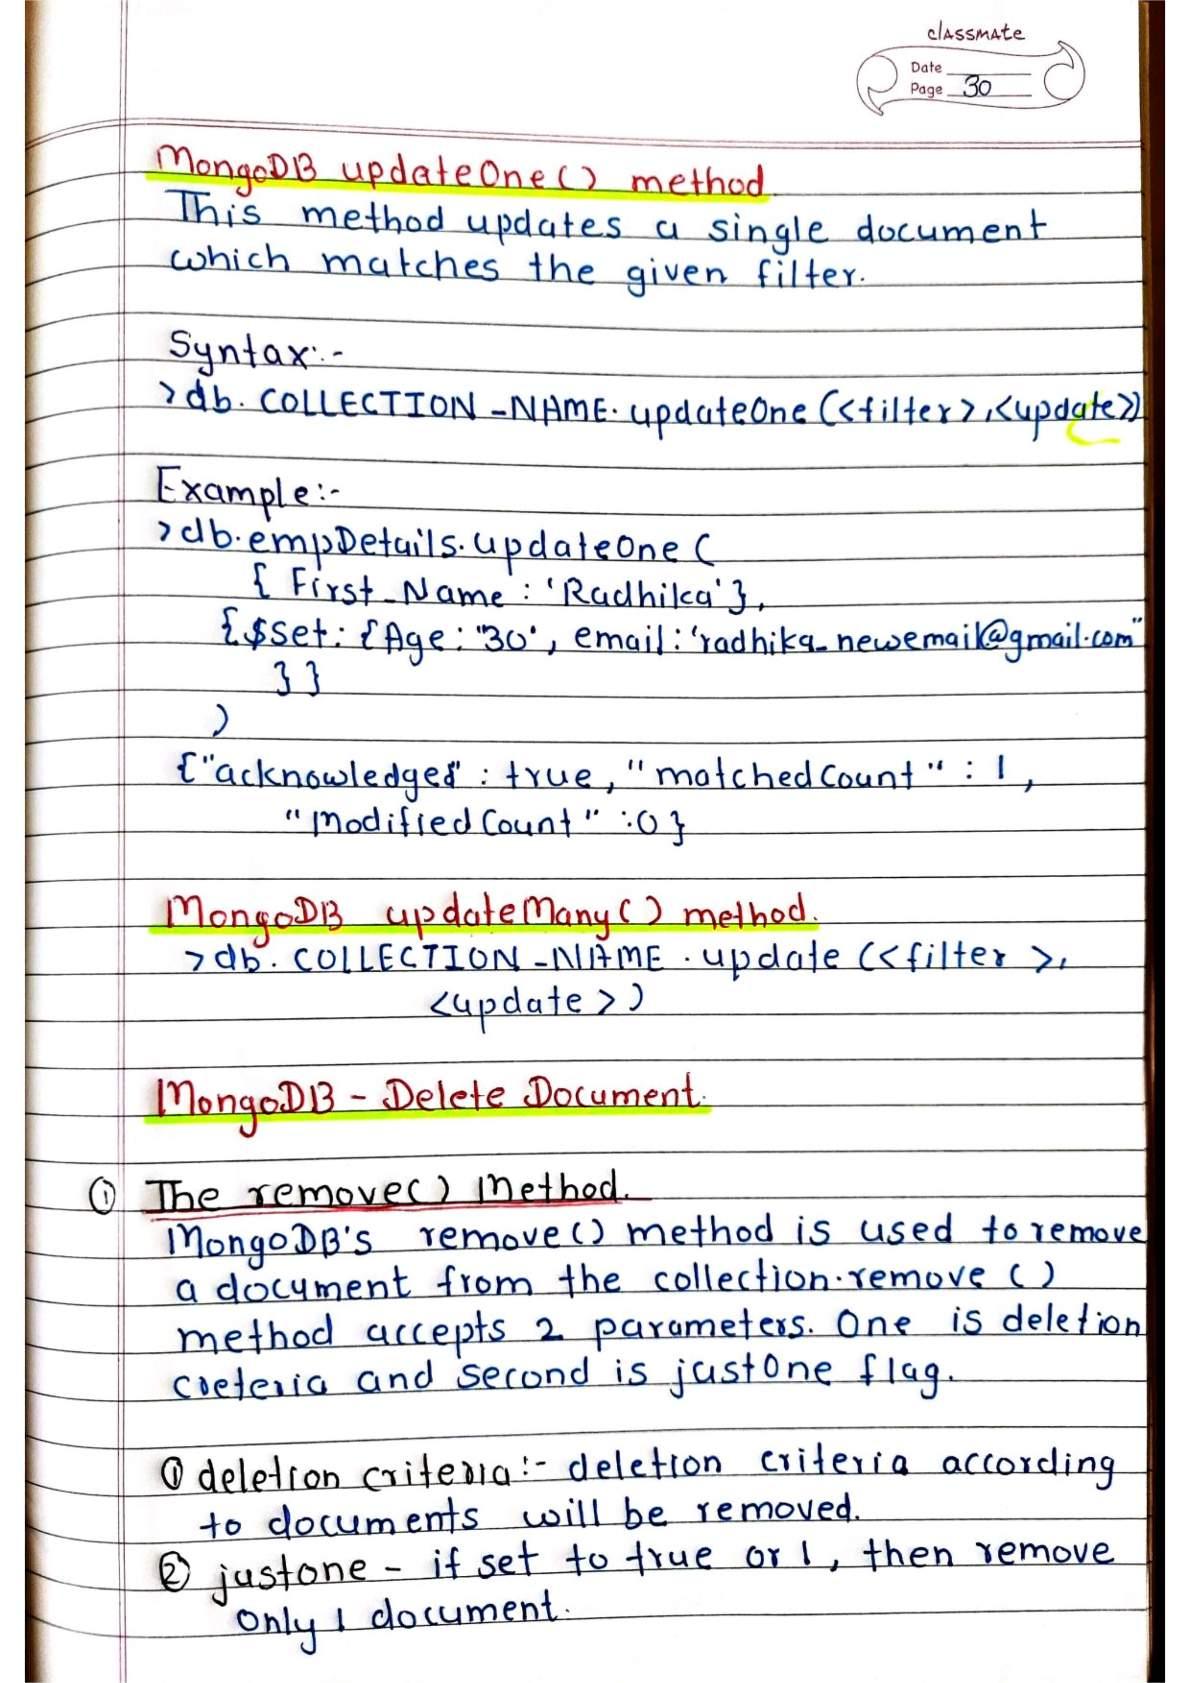 classmate
Date
Page 30
MongoDB updateOne() method
This method updates a single document
which matches the given filter.
Syntax:-
>db.COLLECTION_NAME.updateOne(<filter>,<update>)
Example:-
>db.empDetails.updateOne(
{ First_Name : 'Radhika'},
{$set: {Age: "30", email: 'radhika_newemail@gmail.com"
}}
)
{"acknowledged" : true, "matchedCount" : 1,
"modifiedCount" : 0}
MongoDB updateMany() method.
>db.COLLECTION_NAME.update(<filter>,
<update>)
MongoDB - Delete Document.
① The remove() Method.
MongoDB's remove() method is used to remove
a document from the collection. remove ()
method accepts 2 parameters. One is deletion
creteria and second is justOne flag.
① deletion criteria:- deletion criteria according
to documents will be removed.
② justone - if set to true or 1, then remove
only 1 document.